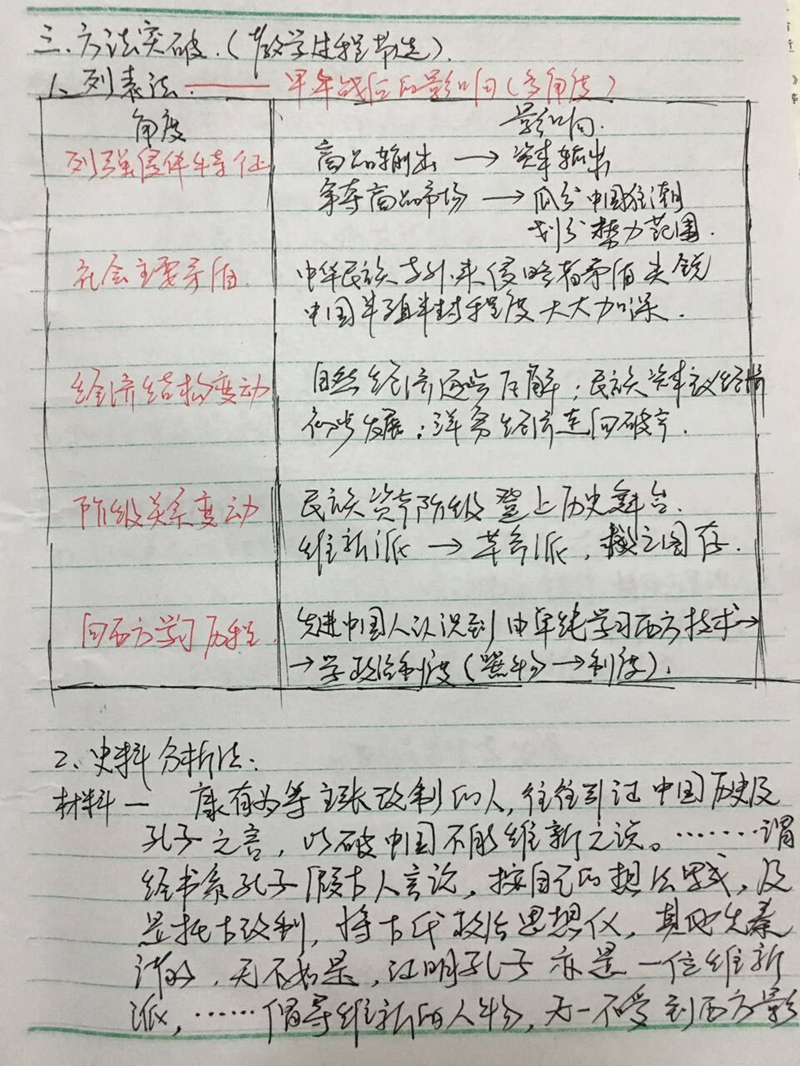 三.方法突破.(教学过程节选).
1、列表法.—— 甲午战后的影响(多角度)
角度 影响.
列强侵华特征 商品输出→资本输出
争夺商品市场→瓜分中国狂潮
划分势力范围.
社会主要矛盾. 中华民族与外来侵略者矛盾尖锐
中国半殖半封程度大大加深.
经济结构变动 自然经济逐步瓦解;民族资本主义经济
初步发展;洋务经济走向破产.
阶级关系变动 民族资产阶级登上历史舞台.
维新派→革命派,救亡图存.
向西方学习历程. 先进中国人认识到由单纯学习西方技术→
→学政治制度(器物→制度).
2、史料分析法:
材料一 康有为等主张改制的人,往往引证中国历史及
孔子之言,以破中国不能维新之说。……谓
经书系孔子假古人言论,按自己的想法写成,及
是托古改制,将古代政治思想仪,其他先秦
诸,无不如是,证明孔子亦是一位维新
派,……倡导维新的人物,无一不受到西方影